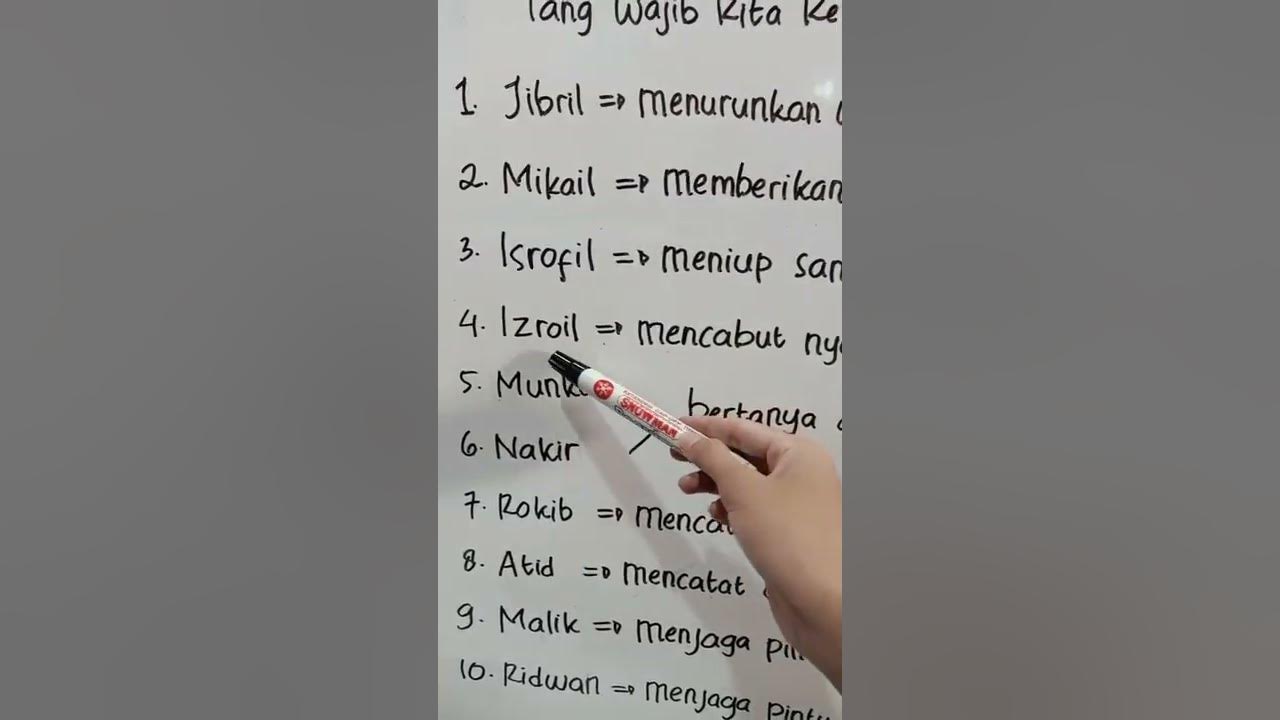 Yang Wajib Kita Ke
1. Jibril => menurunkan
2. Mikail => memberikan
3. Isrofil => meniup san
4. Izroil => mencabut ny
5. Munk
bertanya
6. Nakir
SNOWMAN
7. Rokib => mencat
8. Atid => mencatat
9. Malik => menjaga pin
10. Ridwan => menjaga pintu